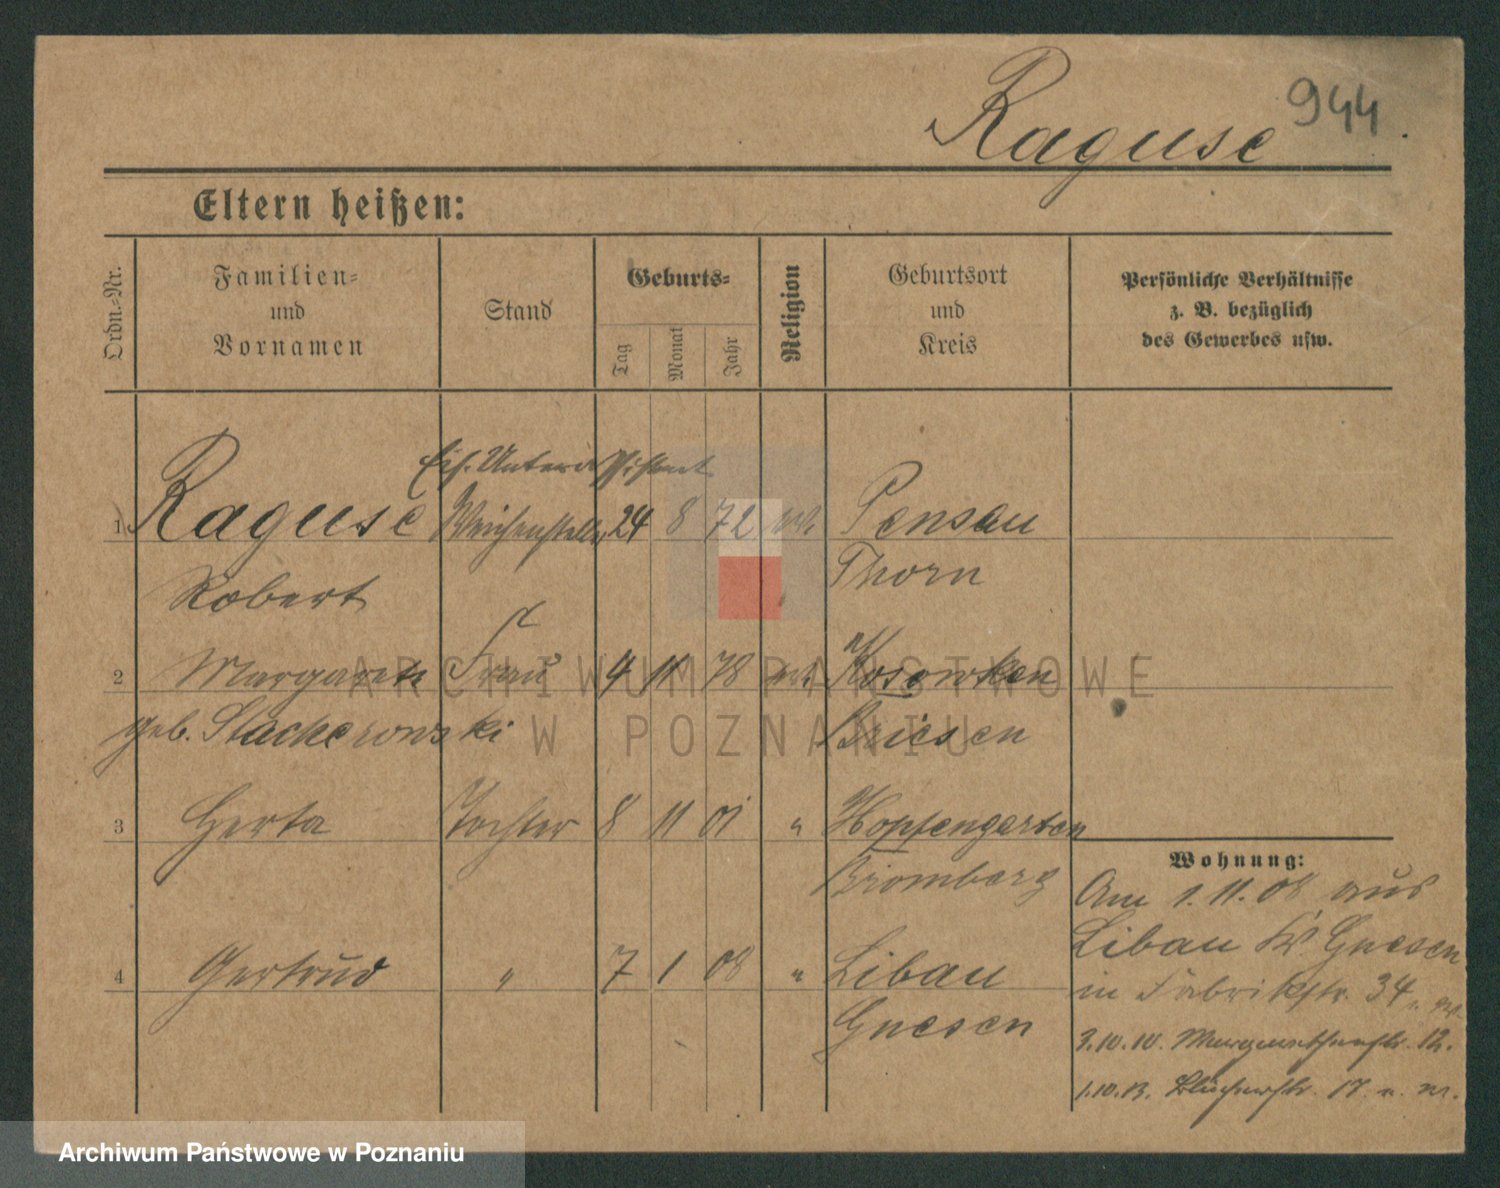 944
Raguse
Eltern heißen:
Ordn.-Nr.
Familien-
und
Vornamen
Stand
Geburts-
Tag
Monat
Jahr
Religion
Geburtsort
und
Kreis
Persönliche Verhältnisse
z. B. bezüglich
des Gewerbes usw.
Eis. Unterassistent
1 Raguse Weichensteller 24 8 72 ev. Pensau
Robert Thorn
2 Margarete Frau 4 11 78 ev. Kosowken
geb. Stackerowski Briesen
3 Herta Tochter 8 11 01 " Hopfengarten
Bromberg
4 Gertrud " 7 1 08 " Libau
Gnesen
Wohnung:
Am 1.11.08 aus
Libau Kr Gnesen
in Fabrikstr. 34
3.10.10. Margarethenstr. 12.
1.10.13. Blücherstr. 17
ARCHIWUM PAŃSTWOWE
W POZNANIU
Archiwum Państwowe w Poznaniu